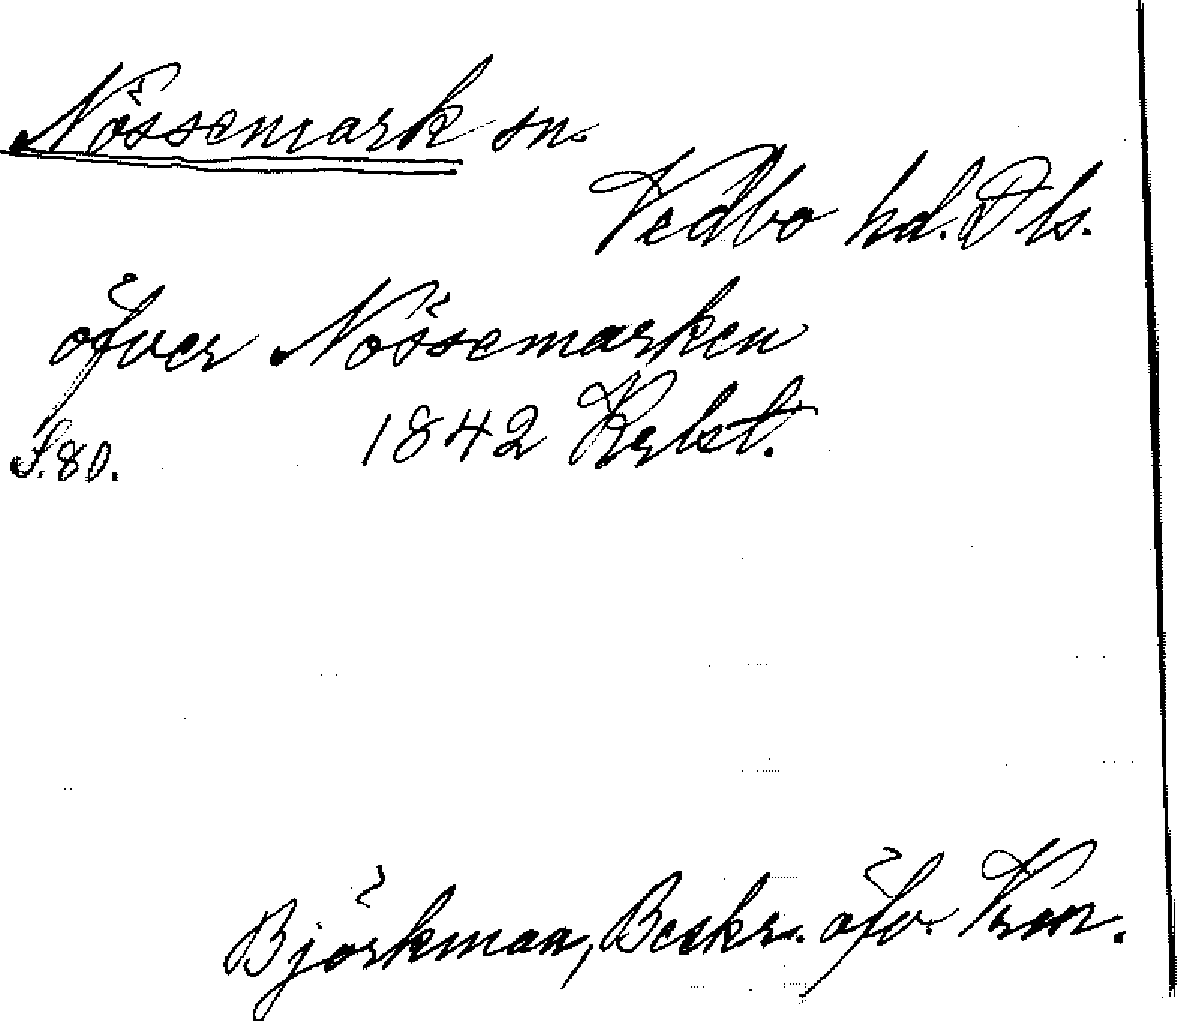 Nössemark sn.
Vedbo hd. Dls.
öfver Nössemarken
S. 80. 1842 Krkst.
Björkman, Beskr. öfv. Vrm.